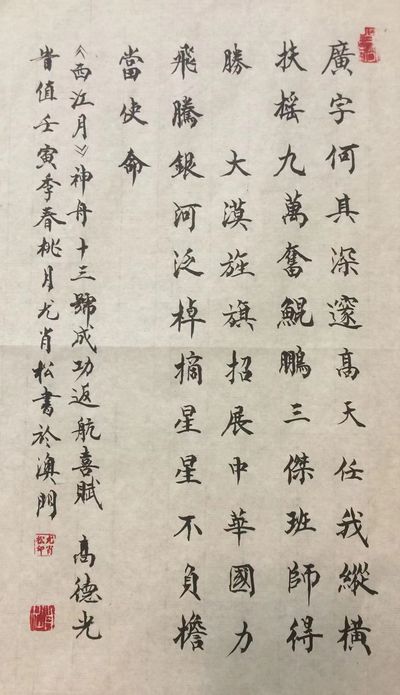 廣字何其深邃高天任我縱橫
扶榣九萬奮鯤鵬三傑班師得
勝 大漠旌旗招展中華國力
飛騰銀河泛棹摘星星不負擔
當使命
《西江月》神舟十三號成功返航喜賦 高德光
旹值壬寅季春桃月尤肖松書於澳門
尤肖松印